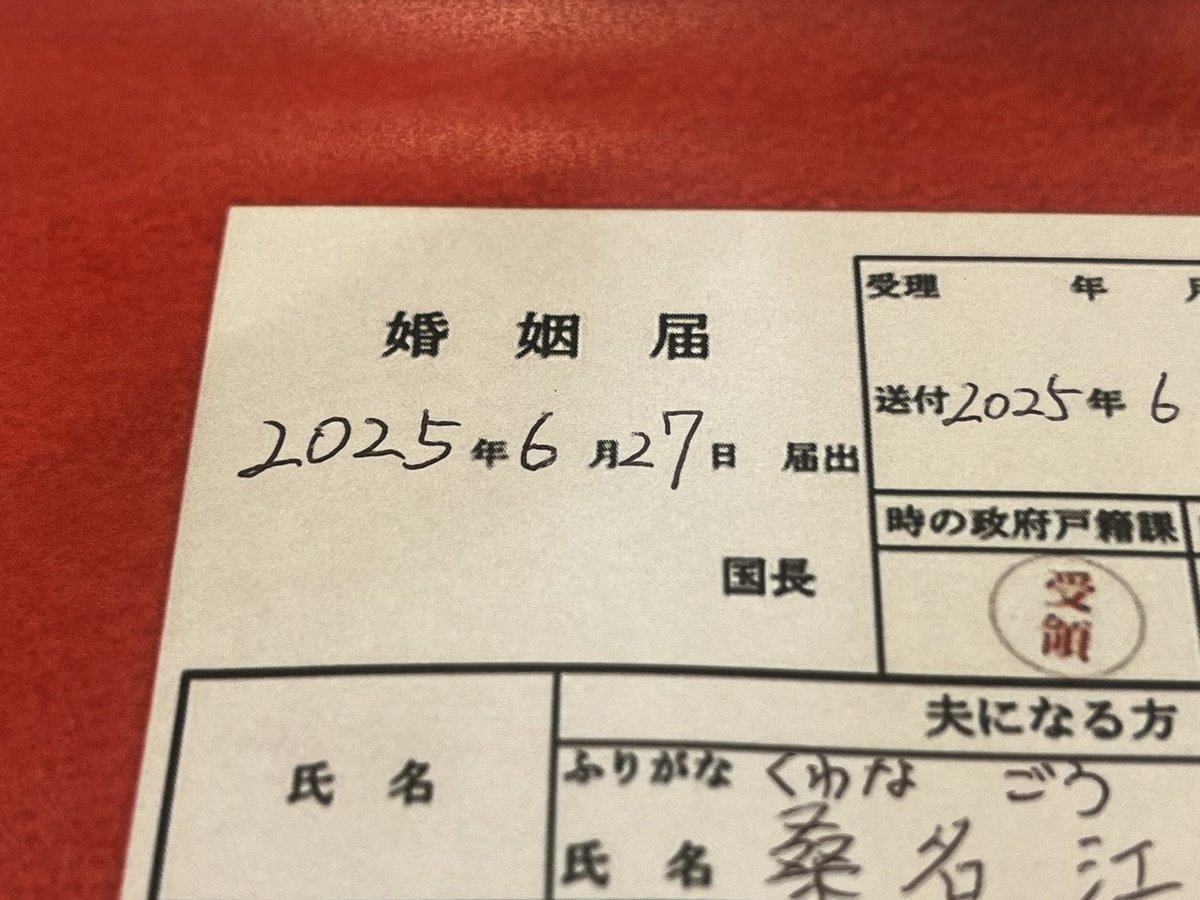 婚姻届
2025年6月27日 届出
国長
受理 年 月
送付2025年6
時の政府戸籍課
受領
氏名
夫になる方
ふりがな くわな ごう
氏名 桑名 江